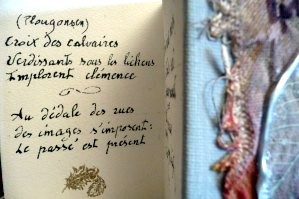 (Plougonven)
Croix des calvaires
Verdissants sous les lichens
Implorent clémence
Au dédale des rues
des images s'imposent :
Le passé est présent